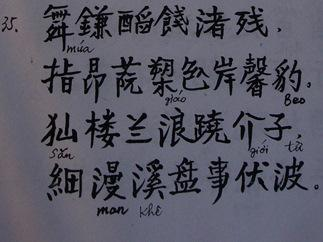 35. 舞鎌醕餞渚残,
múa
指昂蒄槊色岸馨豹.
giáo Beo
狐楼兰浪蹺介子,
săn giới tử
細漫溪盘事伏波。
man Khê